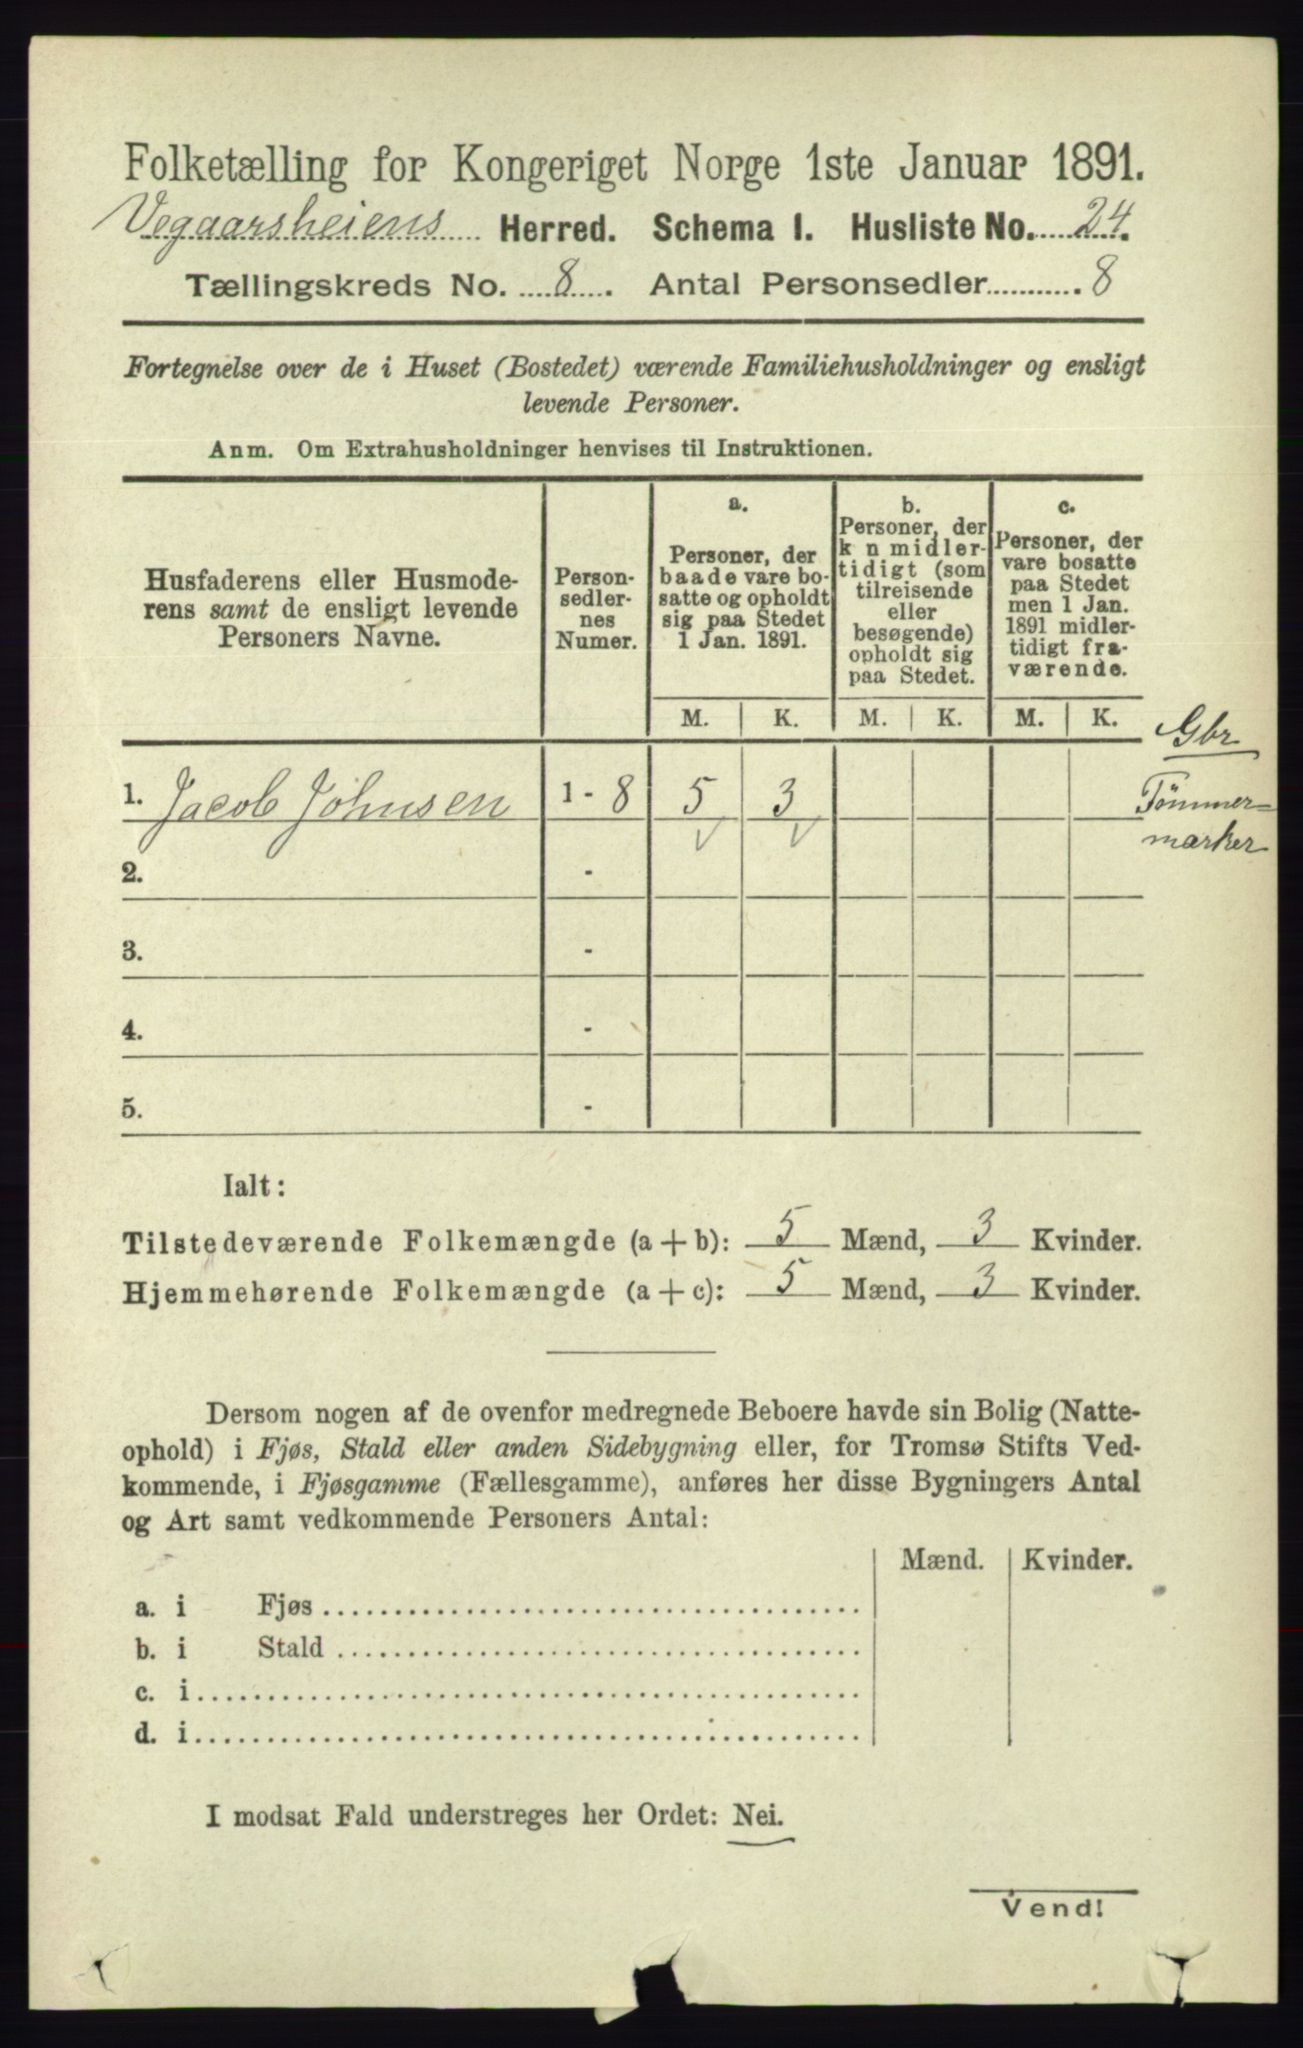 Folketælling for Kongeriget Norge 1ste Januar 1891.
Vegaarsheiens Herred. Schema 1. Husliste No. 24.
Tællingskreds No. 8. Antal Personsedler 8
Fortegnelse over de i Huset (Bostedet) værende Familiehusholdninger og ensligt
levende Personer.
Anm. Om Extrahusholdninger henvises til Instruktionen.
Husfaderens eller Husmode-
rens samt de ensligt levende
Personers Navne.
Person-
sedler-
nes
Numer.
a.
Personer, der
baade vare bo-
satte og opholdt
sig paa Stedet
1 Jan. 1891.
b.
Personer, der
k n midler-
tidigt (som
tilreisende
eller
besøgende)
opholdt sig
paa Stedet.
c.
Personer, der
vare bosatte
paa Stedet
men 1 Jan.
1891 midler-
tidigt fra-
værende.
M. K. M. K. M. K.
Gbr
1. Jacob Johnsen 1 - 8 5 3
Tömmer-
mærker
2. -
3. -
4. -
5. -
Ialt:
Tilstedeværende Folkemængde (a + b): 5 Mænd, 3 Kvinder.
Hjemmehørende Folkemængde (a + c): 5 Mænd, 3 Kvinder.
Dersom nogen af de ovenfor medregnede Beboere havde sin Bolig (Natte-
ophold) i Fjøs, Stald eller anden Sidebygning eller, for Tromsø Stifts Ved-
kommende, i Fjøsgamme (Fællesgamme), anføres her disse Bygningers Antal
og Art samt vedkommende Personers Antal:
Mænd. Kvinder.
a. i Fjøs
b. i Stald
c. i
d. i
I modsat Fald understreges her Ordet: Nei.
Vend!